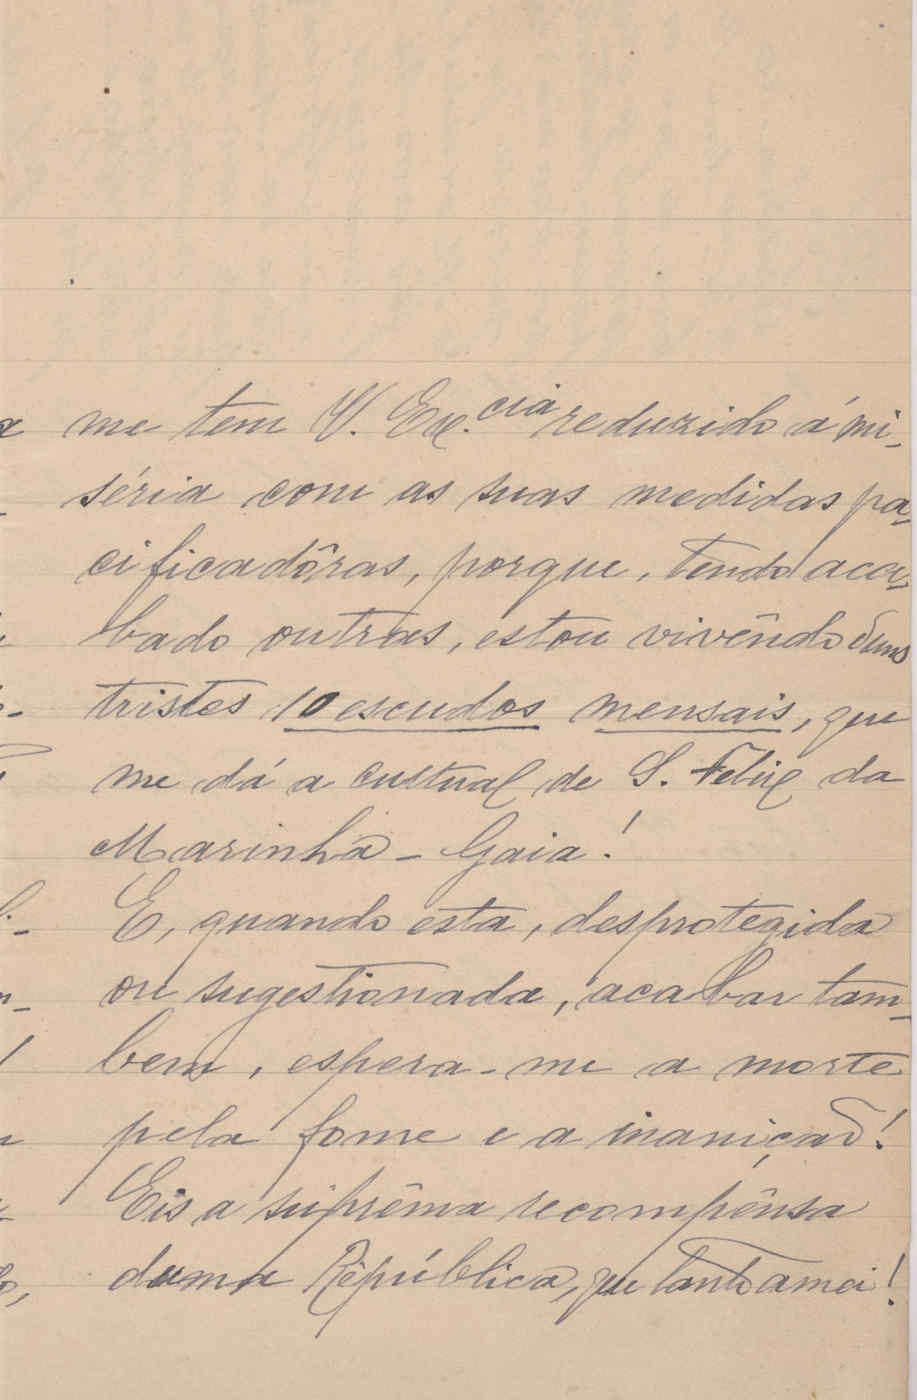 me tem V. Ex.cia reduzido á mi-
séria com as suas medidas pa-
cificadôras, porque, tendo aca-
bado outras, estou vivêndo duns
tristes 10 escudos mensais, que
me dá a cultual de S. Felix da
Marinha - Gaia!
E, quando esta, desprotegida
ou sugestionada, acabar tam-
bem, espera-me a morte
pela fome e a inanição!
Eis a suprêma recompênsa
duma República, que tanto amei!